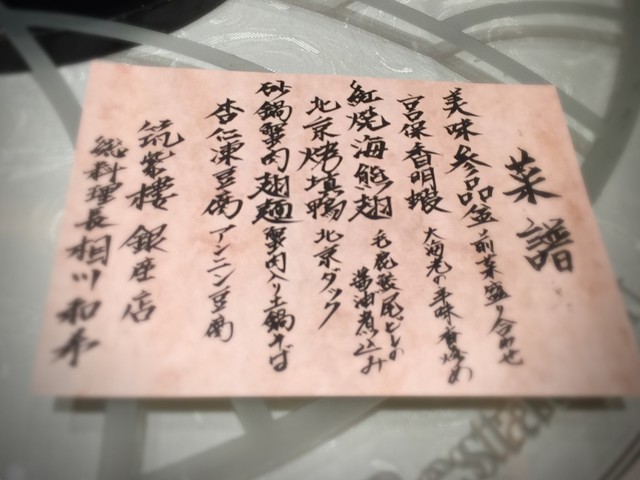 菜譜
美味参品盆 前菜盛り合わせ
宮保香明蝦 大海老の辛味香り炒め
紅焼海熊翅 毛鹿鮫尾ビレの醤油煮込み
北京烤填鴨 北京ダック
砂鍋蟹肉翅麺 蟹肉入り土鍋そば
杏仁凍豆腐 アンニン豆腐
筑紫樓 銀座店
総料理長 相川和